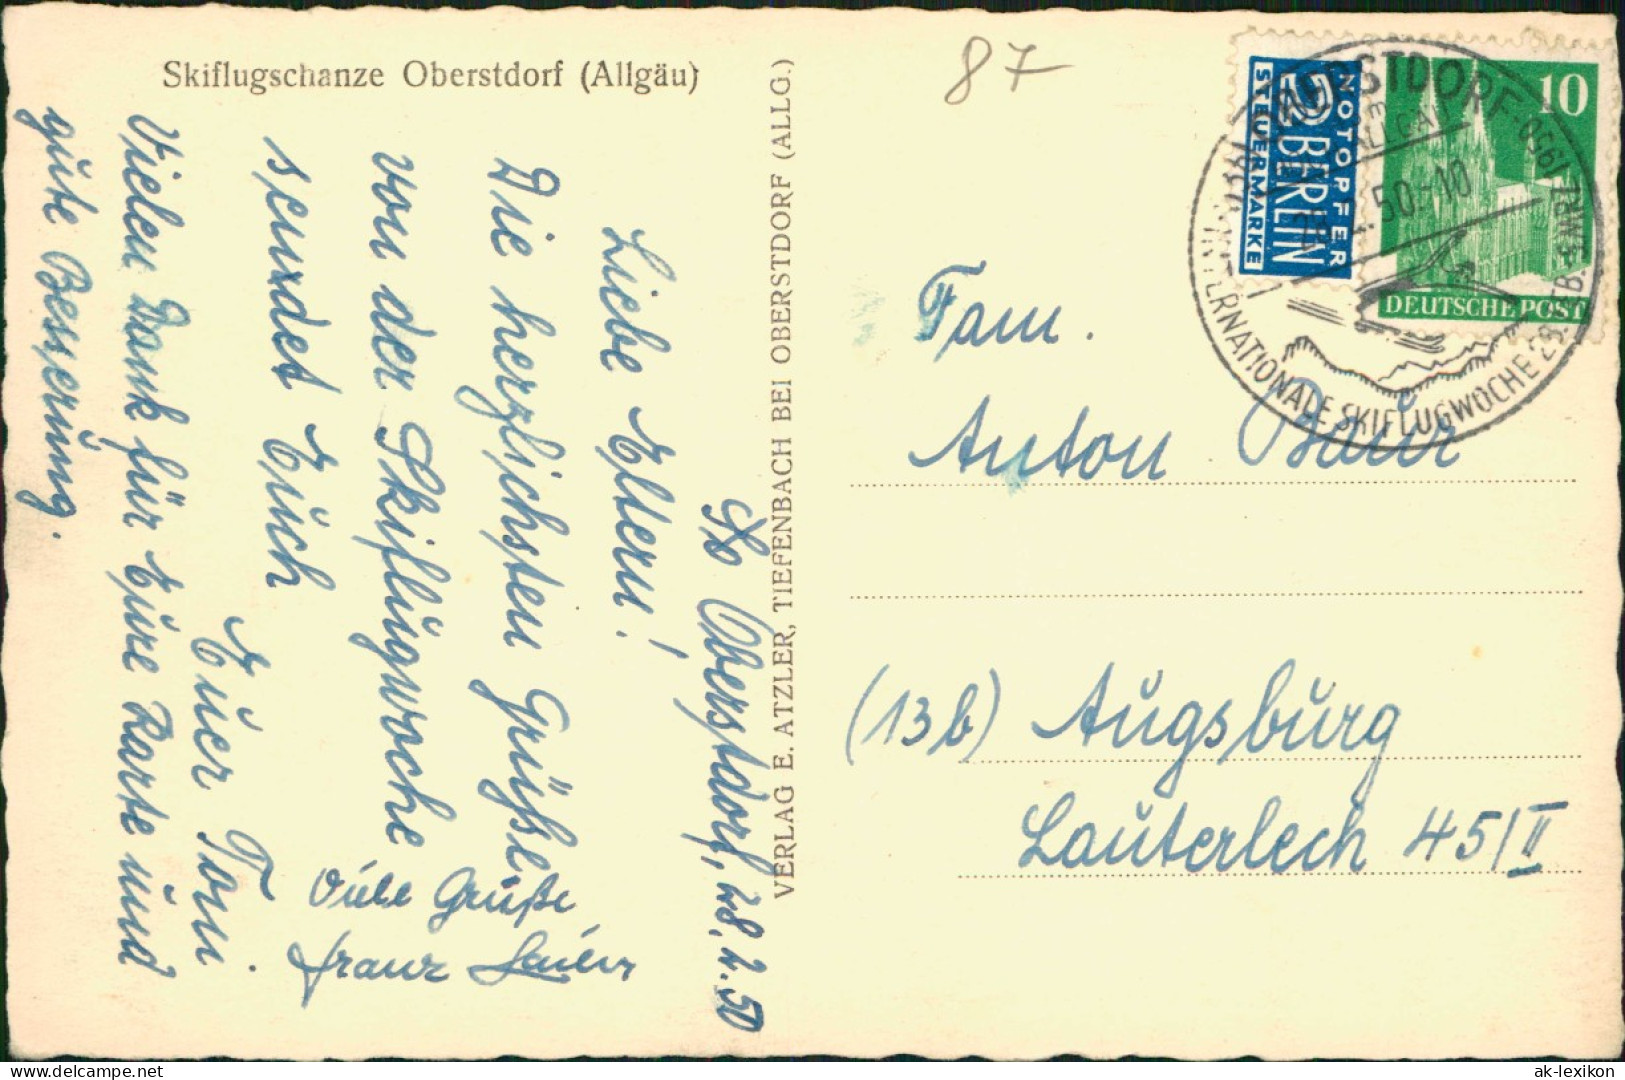 Skiflugschanze Oberstdorf (Allgäu)
Oberstdorf, 28.2.50
Liebe Eltern!
Die herzlichsten Grüße
von der Skiflugwoche
sendet Euch
Euer Toni.
Vielen Dank für Eure Karte und
gute Besserung.
Viele Grüße
Franz
VERLAG E. ATZLER, TIEFENBACH BEI OBERSTDORF (ALLG.)
87
NOTOPFER
2 BERLIN
STEUERMARKE
10
DEUTSCHE POST
OBERSTDORF
50.-10
INTERNATIONALE SKIFLUGWOCHE 28. FEB.-5. MRZ. 1950
Fam.
Anton Baur
(13b) Augsburg
Lauterlech 45/II
delcampe.net
ak-lexikon